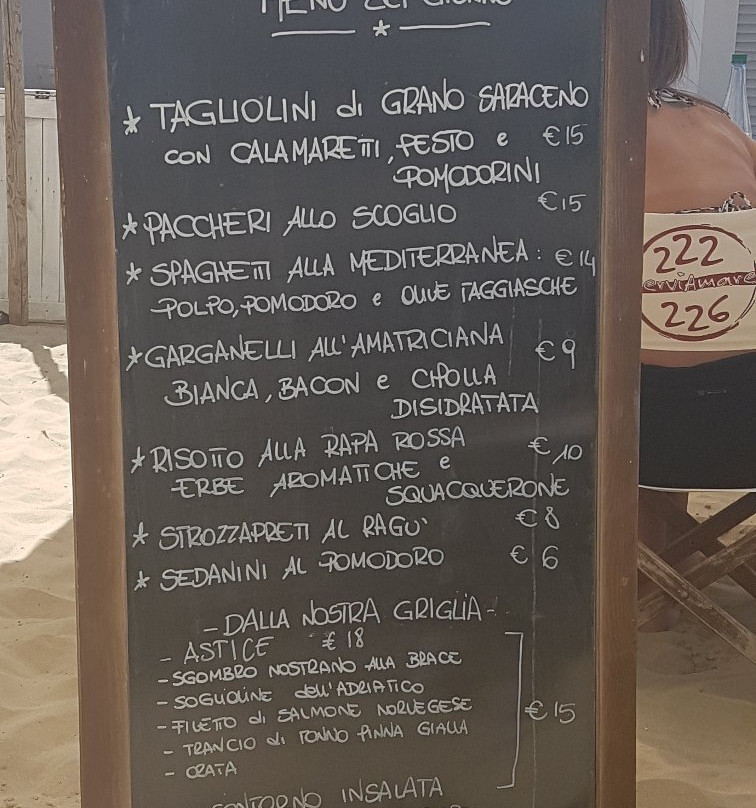 MENÙ DEL GIORNO
★ TAGLIOLINI di GRANO SARACENO
CON CALAMARETTI, PESTO e €15
POMODORINI
★ PACCHERI ALLO SCOGLIO €15
★ SPAGHETTI ALLA MEDITERRANEA: €14
POLPO, POMODORO e OLIVE TAGGIASCHE
★ GARGANELLI ALL'AMATRICIANA €9
BIANCA, BACON e CIPOLLA
DISIDRATATA
★ RISOTTO ALLA RAPA ROSSA €10
ERBE AROMATICHE e
SQUACQUERONE
★ STROZZAPRETI AL RAGU' €8
★ SEDANINI AL POMODORO €6
- DALLA NOSTRA GRIGLIA -
- ASTICE €18
- SGOMBRO NOSTRANO ALLA BRACE
- SOGLIOLINE dell'ADRIATICO
- FILETTO di SALMONE NORVEGESE €15
- TRANCIO di TONNO PINNA GIALLA
- ORATA
CONTORNO INSALATA
222
226